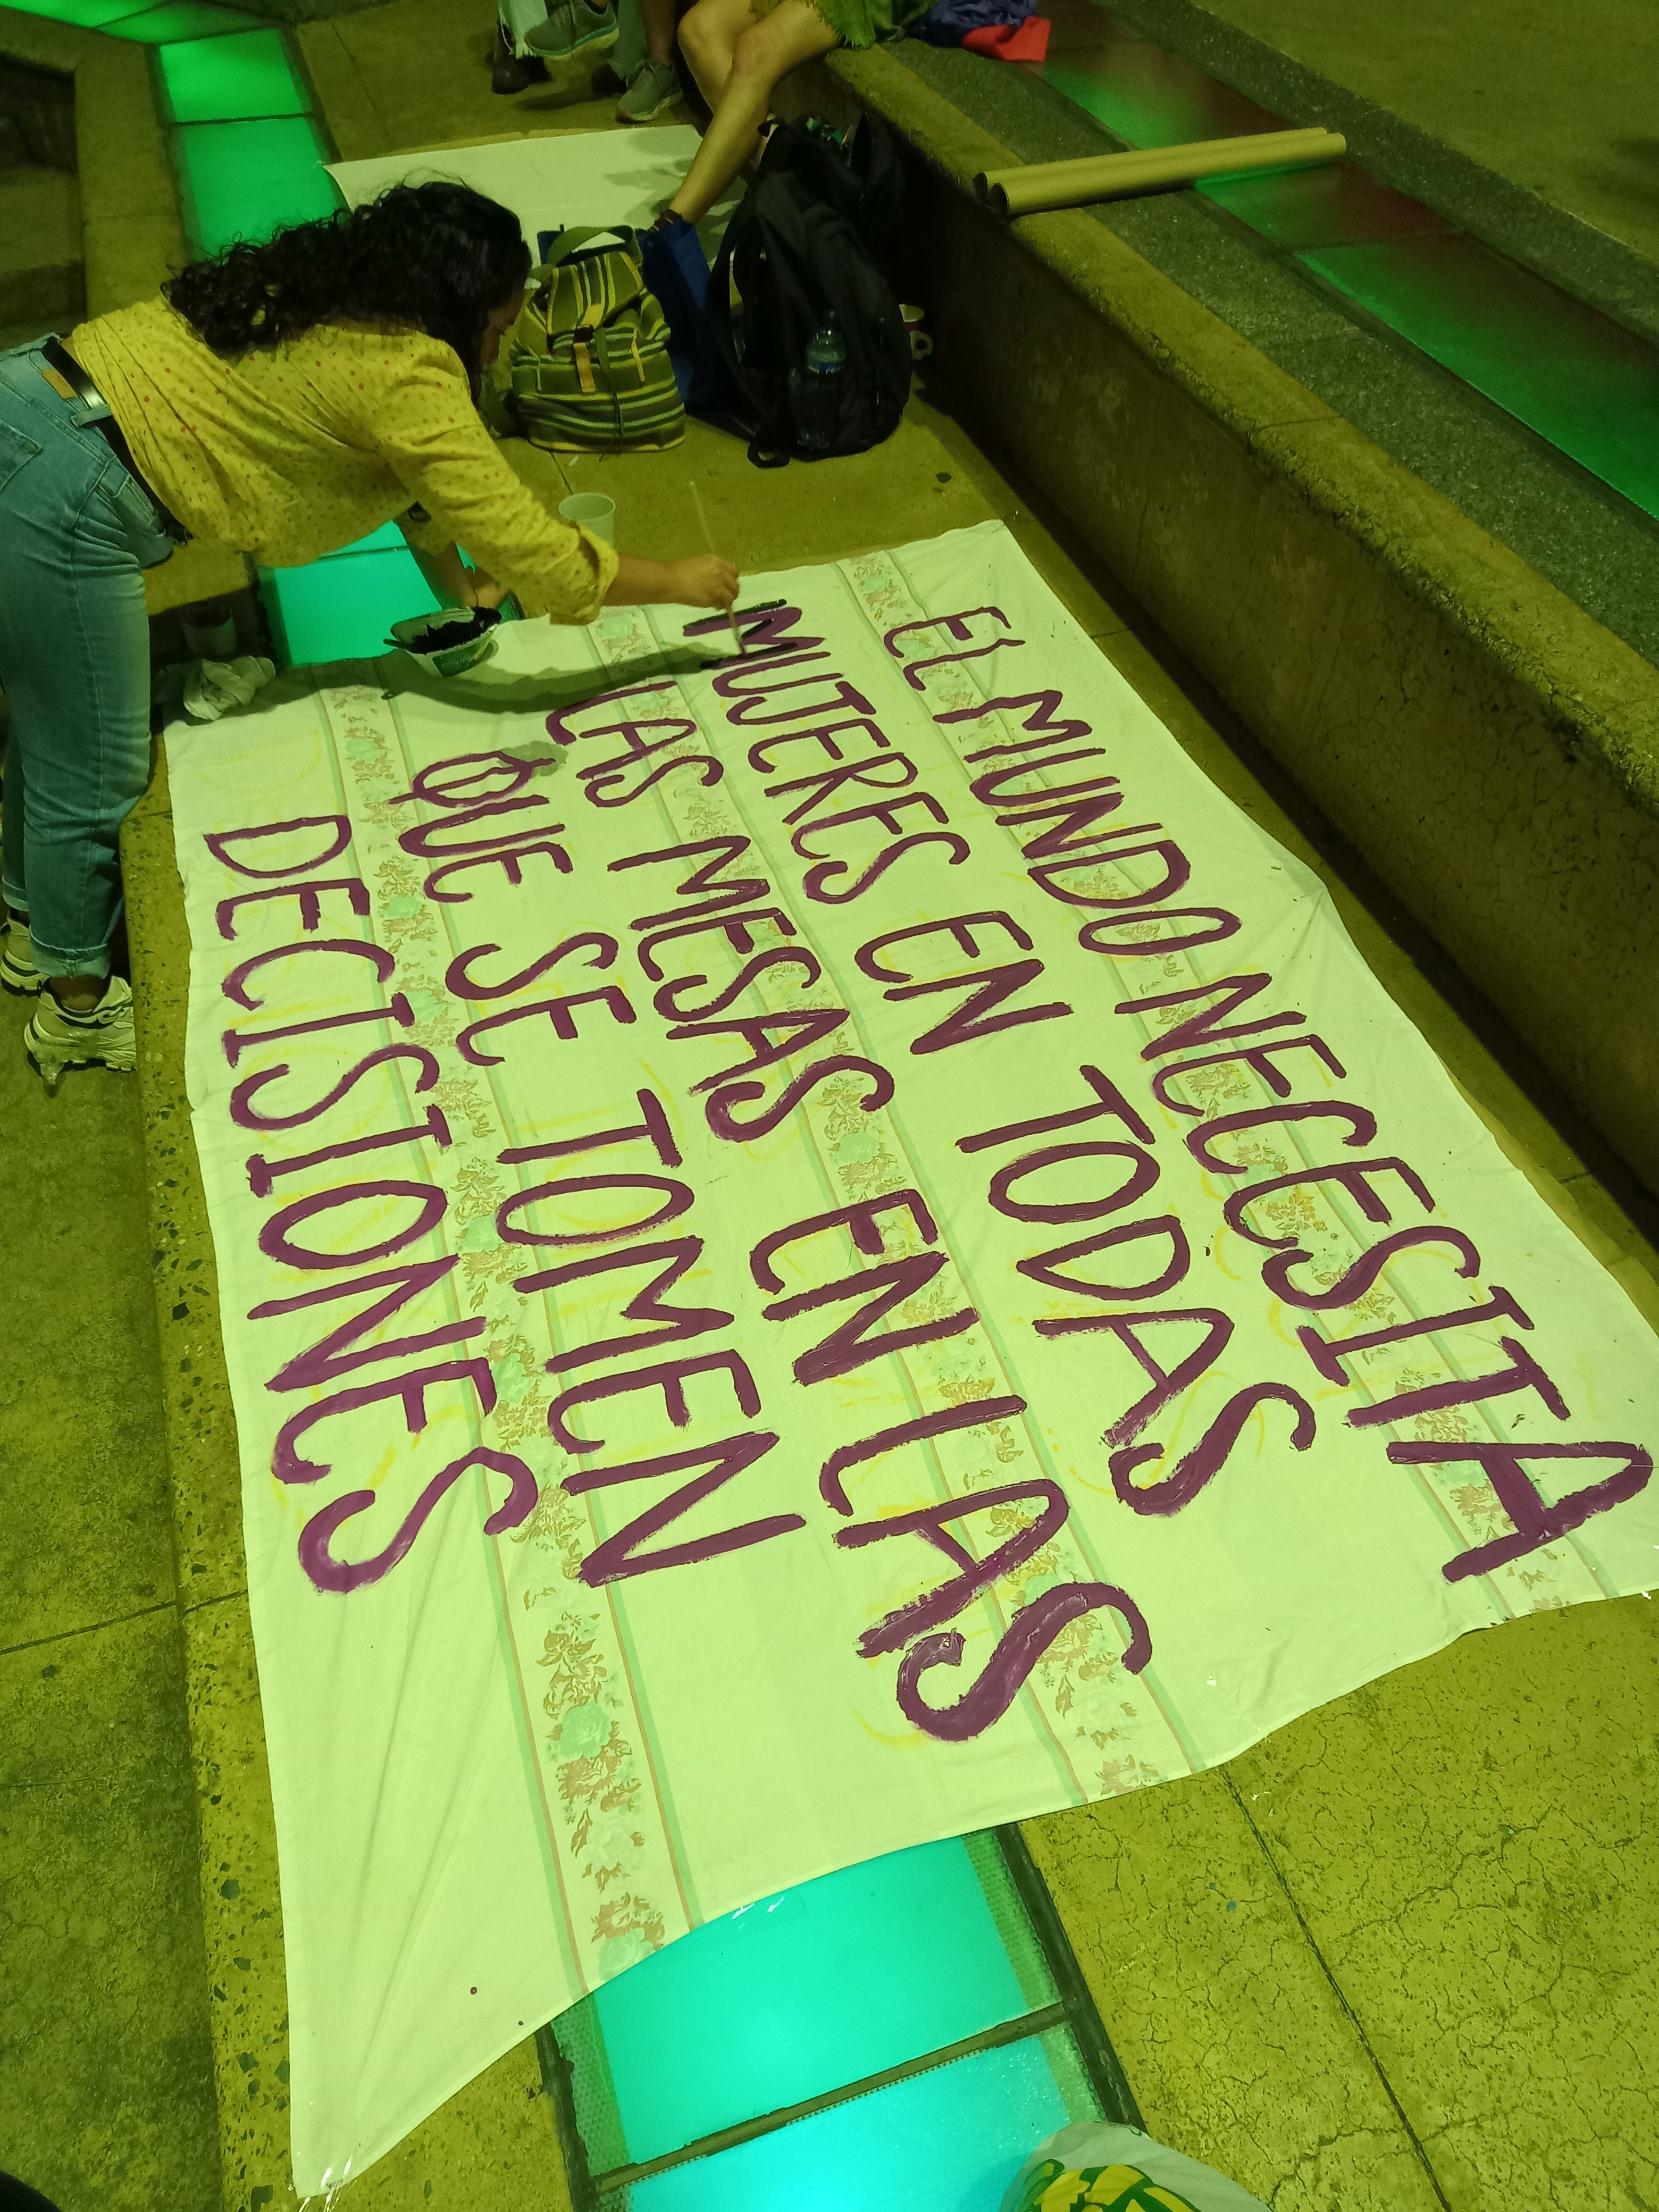 EL MUNDO NECESITA
MUJERES EN TODAS
LAS MESAS EN LAS
QUE SE TOMEN
DECISIONES